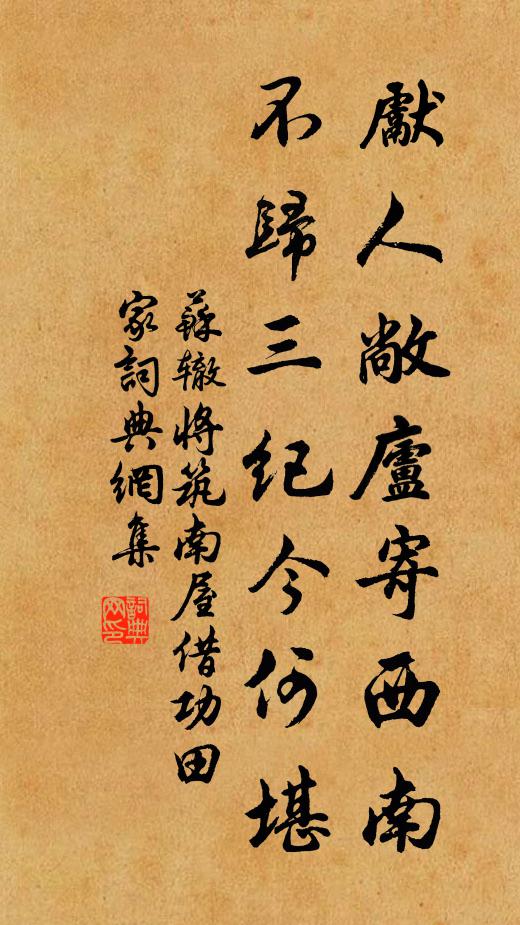 獻人敞廬寄西南
不歸三紀今何堪
蘇轍將筑南屋借功田
家詞典網集
詞典
网印